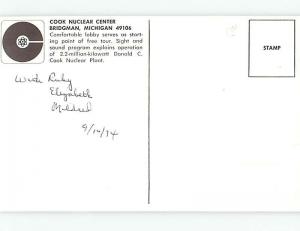 COOK NUCLEAR CENTER
BRIDGMAN, MICHIGAN 49106
Comfortable lobby serves as start-
ing point of free tour. Sight and
sound program explains operation
of 2.2-million-kilowatt Donald C.
Cook Nuclear Plant.
STAMP
With Ruby
Elizabeth
Mildred
9/14/74